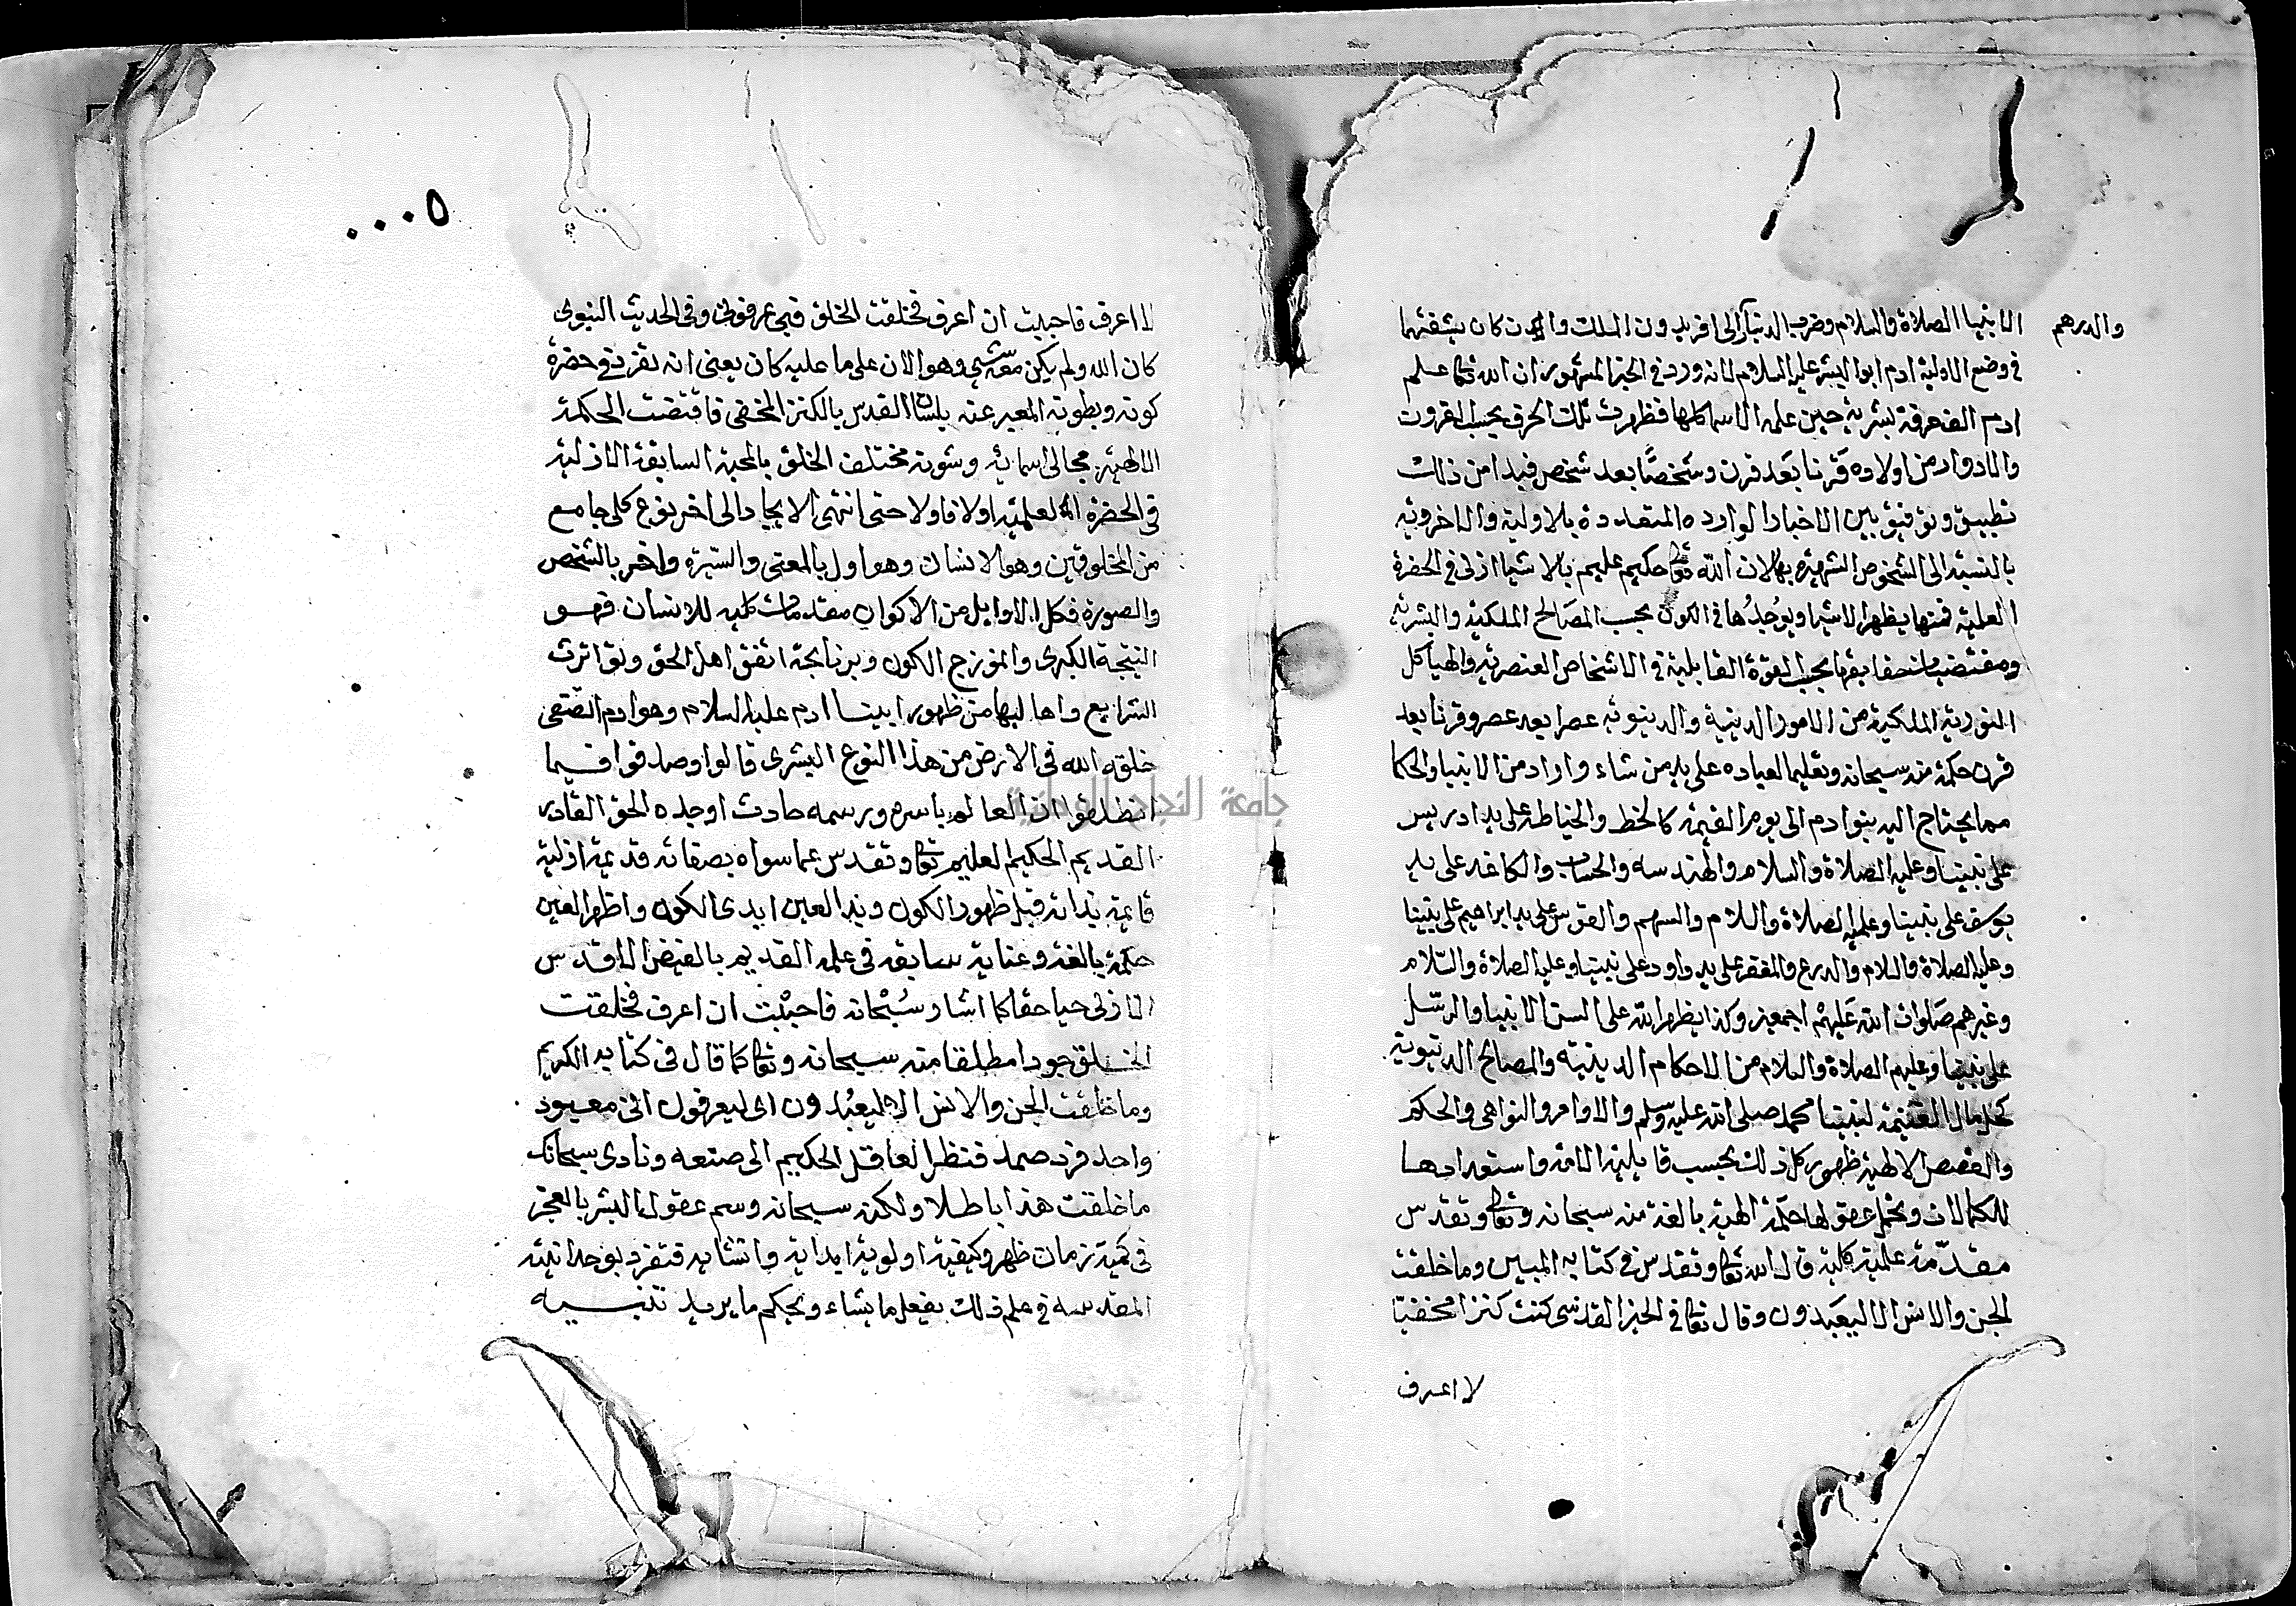 الانبيا الصلاة والسلام وضرب الدينار الى افريدون الملك وان كان بشقتهما
والدرهم
في وضع الاولية ادم ابوا البشر عليه السلام لانه ورد في الخبر المشهور ان الله تعالى علم
ادم الف حرفة بشرية حين علمه الاسما كلها فظهرت تلك الحرف بحسب القرون
والادوار من اولاده قرنا بعد قرن وشخصا بعد شخص فبدا من ذلك
تطبيق وتوفيق بين الاخبار الوارده المتعددة بالاولية والاخروية
بالنسبة الى الشخوص الشهيرة بها لان الله تعالى حكيم عليم بالاشيا ازلى في الحضرة
العلمية فمنها يظهر الاشيا ويوجدها في الكون بحسب المصالح الملكية والبشرية
ومقتضيات حقايقها بحسب القوة القابلية في الاشخاص العنصرية والهياكل
النورية الملكية من الامور الدينية والدنيوية عصرا بعد عصر وقرنا بعد
قرن حكمة منه سبحانه وتعليما لعباده على يد من شاء واراد من الانبيا والحكما
مما يحتاج اليه بنوا ادم الى يوم القيمة كالخط والخياطة على يد ادريس
على نبينا وعليه الصلاة والسلام والهندسه والحساب والكاغد على يد
يوسف على نبينا وعليه الصلاة والسلام والسهم والقوس على يد ابراهيم على نبينا
وعليه الصلاة والسلام والدرع والمغفر على يد داود على نبينا وعليه الصلاة والسلام
وغيرهم صلوات الله عليهم اجمعين وكذا يظهر الله على السن الانبيا والرسل
على نبينا وعليهم الصلاة والسلام من الاحكام الدينية والمصالح الدنيوية
كحل مال الغنيمة لنبينا محمد صلى الله عليه وسلم والاوامر والنواهى والحكم
والقصص الالهية ظهور كل ذلك بحسب قابلية الامة واستعدادها
للكمالات وتحمل عقولها حكمة الهية بالغة منه سبحانه وتعالى وتقدس
مقدمة علمية كلية قال الله تعالى وتقدس في كتابه المبين وما خلقت
الجن والانس الا ليعبدون وقال تعالى في الخبر القدسى كنت كنزا مخفيا
لا اعرف
٥
لا اعرف فاحببت ان اعرف فخلقت الخلق فبى عرفونى وفى الحديث النبوى
كان الله ولم يكن معه شى وهو الان على ما عليه كان يعنى انه تفرد في حضرة
كونه وبطونه المعبر عنه بلسان القدس بالكنز المخفى فاقتضت الحكمة
الالهية مجالى اسمائه وشونه مختلف الخلق بالمحبة السابقة الازلية
في الحضرة العلمية اولا فاولا حتى انتهى الايجاد الى اخر نوع كلى جامع
من المخلوقين وهو الانسان وهو اول بالمعنى والسيرة واخر بالشخص
والصورة فكل الاوايل من الاكوان مقدمات كليه للانسان فهو
النتيجة الكبرى وانموزج الكون وبرنامجة اتفق اهل الحق وتواترت
الشرايع واهاليها من ظهور ابينا ادم عليه السلام وهو ادم الصفى
خلقه الله في الارض من هذا النوع البشرى قالوا وصدقوا فيما
العالم باسره ورسمه حادث اوجده الحق القادر
القديم الحكيم العليم تعالى وتقدس عما سواه بصفاته قديمة ازلية
قايمة بذاته قبل ظهور الكون وبدء العين ابدى الكون واظهر العين
حكمة بالغة وعناية سابقه في علمه القديم بالفيض الاقدس
الازلى حيا حقا كما اشار سبحانه فاحببت ان اعرف فخلقت
الخلق جودا مطلقا منه سبحانه وتعالى كما قال في كتابه الكريم
وما خلقت الجن والانس الا ليعبدون اى ليعرفون انى معبود
واحد فرد صمد فنظر العاقل الحكيم الى صنعه ونادى سبحانك
ما خلقت هذا باطلا ولكنه سبحانه وسم عقول البشر بالعجز
في كمية زمان ظهر وكيفية اولوية ابدايه وانشايه فتفرد بوحدانيته
المقدسه في علم ذلك يفعل ما يشاء ويحكم ما يريد تنبيه
جامعة النجاح الوطنية